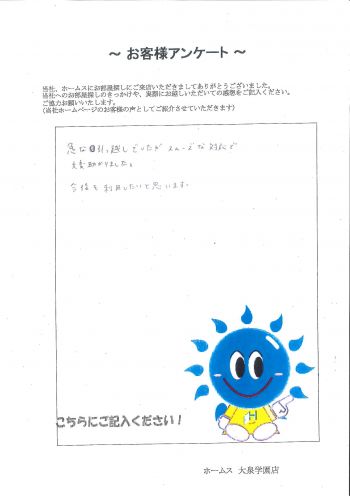 ～ お客様アンケート ～
当社、ホームスにお部屋探しにご来店いただきましてありがとうございました。
当社へのお部屋探しのきっかけや、実際にお越しいただいての感想をご記入ください。
ご協力お願いいたします。
(当社ホームページのお客様の声としてご紹介させていただきます)
急な引っ越しでしたが スムーズな対応で
大変助かりました。
今後も利用したいと思います。
H
こちらにご記入ください！
ホームス 大泉学園店